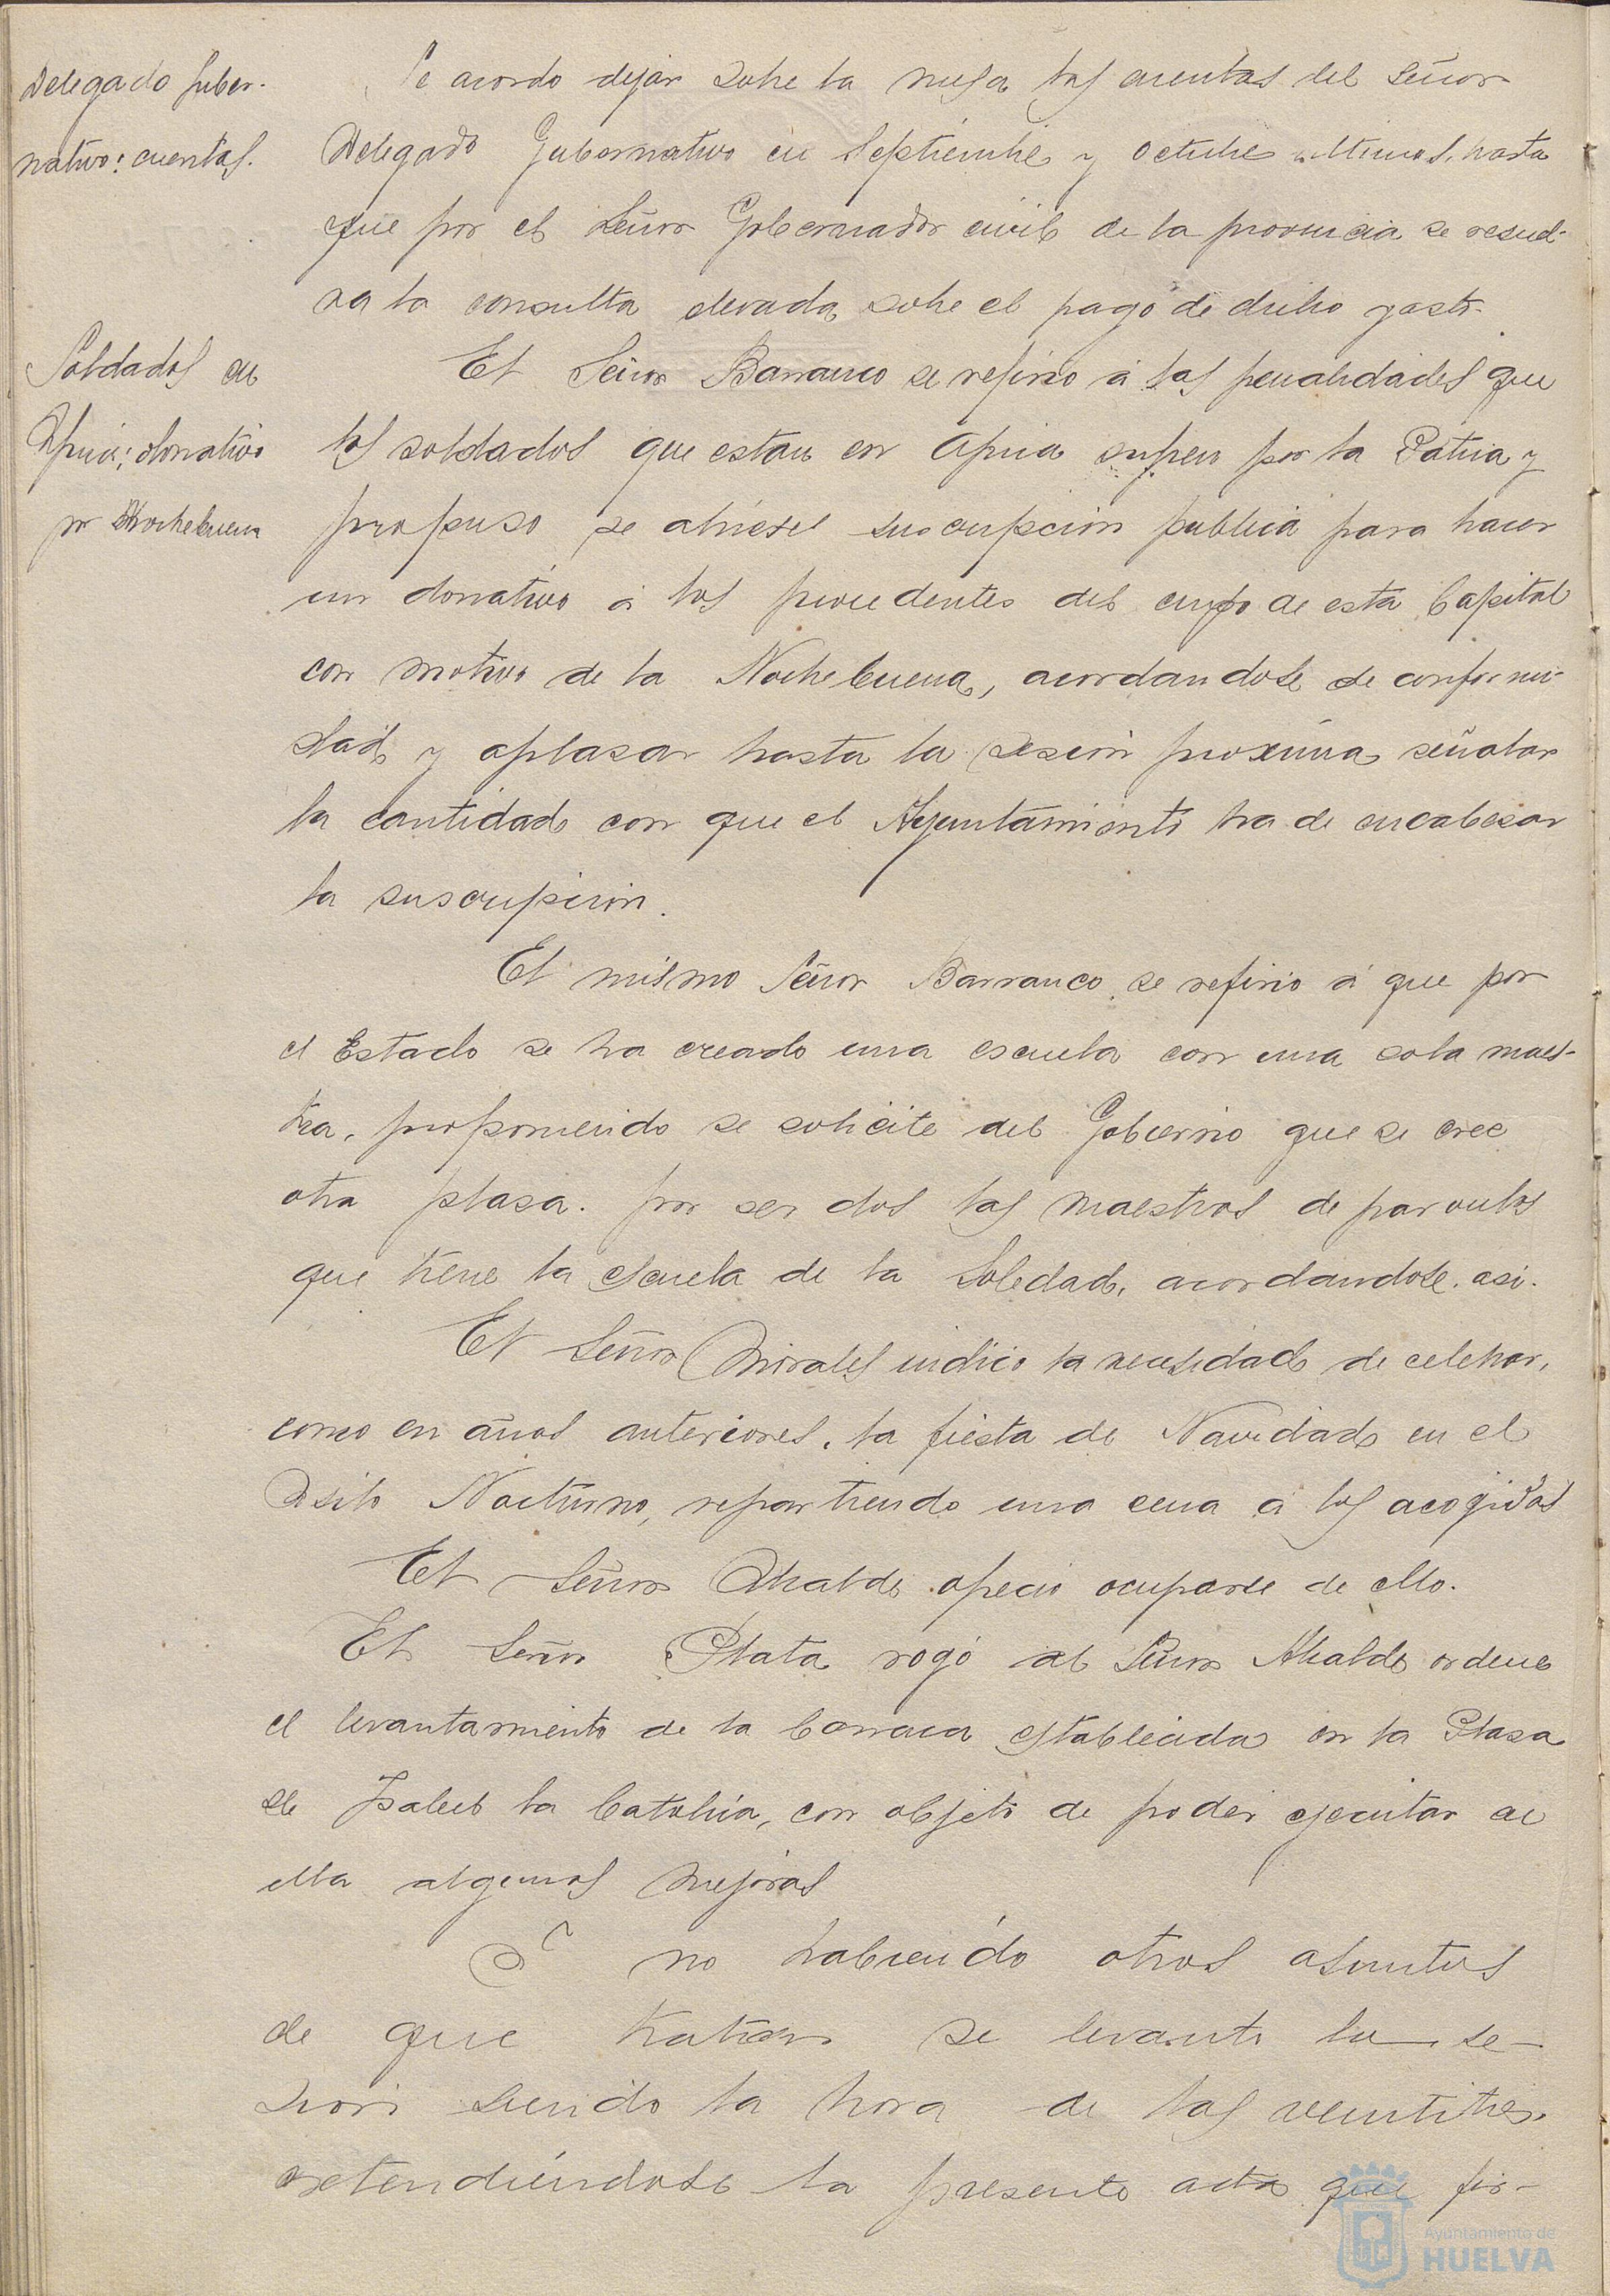 Delegado Guber-
nativo: cuentas.
Se acordo dejar sobre la mesa las cuentas del Señor
Delegado Gubernativo en Septiembre y octubre ultimos, hasta
que por el Señor Gobernador civil de la provincia se resuel-
va la consulta elevada sobre el pago de dicho gasto.
Soldados en
Africa: donativo
por Nochebuena
El Señor Barranco se refirio á las penalidades que
los soldados que estan en Africa sufren por la Patria y
propuso se abriese suscripcion publica para hacer
un donativo á los procedentes del cupo de esta Capital
con motivo de la Nochebuena, acordandose de conformi-
dad y aplasar hasta la sesion proxima señalar
la cantidad con que el Ayuntamiento ha de encabesar
la suscripcion.
El mismo Señor Barranco se refirio á que por
el Estado se ha creado una escuela con una sola maes-
tra, proponiendo se solicite del Gobierno que se cree
otra plasa. por ser dos las maestras de parvulos
que tiene la escuela de la Soledad, acordandose asi.
El Señor Morales indico la necesidad de celebrar,
como en años anteriores, la fiesta de Navidad en el
Asilo Nocturno, repartiendo una cena á los acogidos
El Señor Alcalde ofrecio ocuparse de ello.
El Señor Plata rogó al Señor Alcalde ordene
el levantamiento de la barraca establecida en la Plasa
de Isabel la Catolica, con objeto de poder ejecutar en
ella algunas mejoras
Y no habiendo otros asuntos
de que tratar se levanto la se-
sion siendo la hora de las veintitres
extendiéndose la presente acta que fir-
Ayuntamiento de
HUELVA